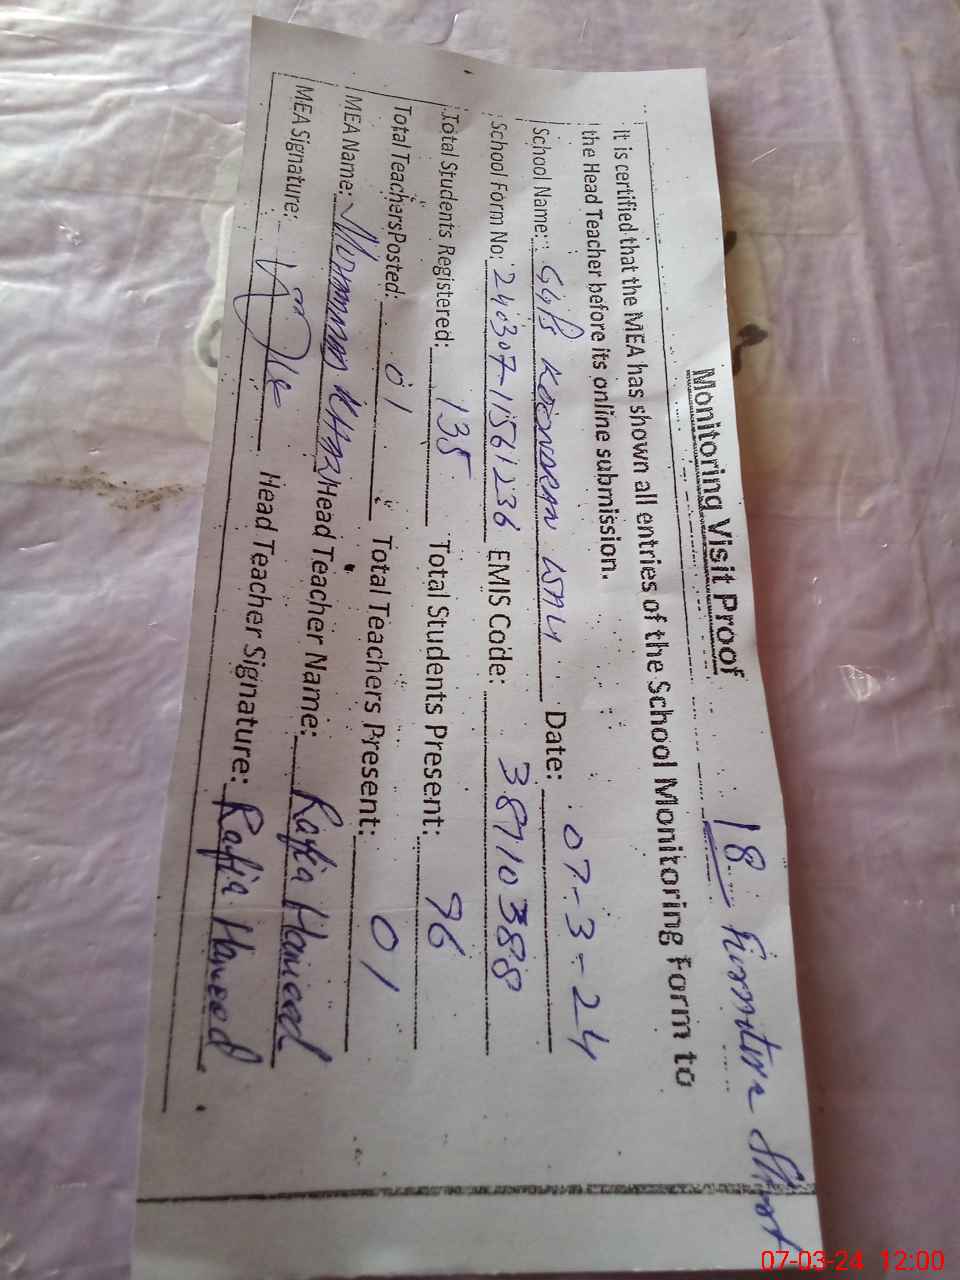 Monitoring Visit Proof
18 Furniture Short
It is certified that the MEA has shown all entries of the School Monitoring Form to
the Head Teacher before its online submission.
School Name: GGPS Date: 07-3-24
School Form No: 240307-1561236 EMIS Code: 38710388
Total Students Registered: 135 Total Students Present: 96
Total Teachers Posted: 01 Total Teachers Present: 01
MEA Name: Head Teacher Name: Rafia Hameed
MEA Signature: Head Teacher Signature: Rafia Hameed
07-03-24 12:00